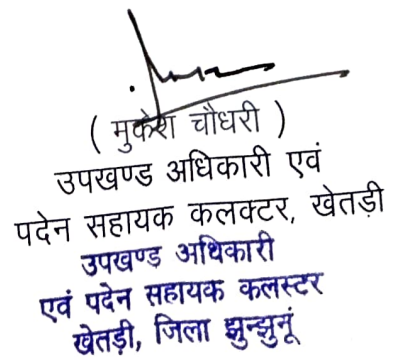 ( मुकेश चौधरी )
उपखण्ड अधिकारी एवं
पदेन सहायक कलक्टर, खेतड़ी
उपखण्ड अधिकारी
एवं पदेन सहायक कलस्टर
खेतड़ी, जिला झुन्झुनूं